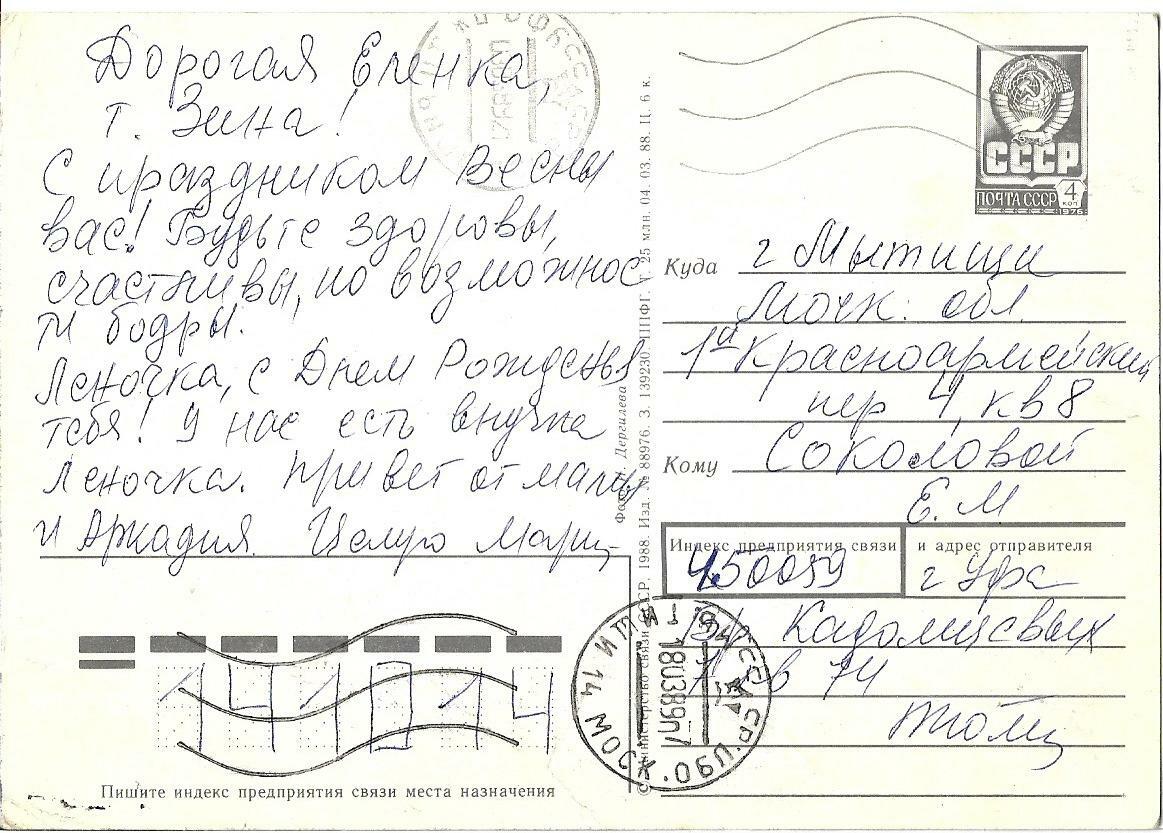 Дорогая Еленка,
т. Зина!
С праздником Весны
вас! Будьте здоровы,
счастливы, по возможнос
ти бодры.
Леночка, с Днем Рождения
тебя! У нас есть внучка
Леночка. Привет от мамы
и Аркадия. Целую
Пишите индекс предприятия связи места назначения
© Министерство связи СССР, 1988. Изд. № 88976. З. 139230. ППФГ. Т. 25 млн. 04. 03. 88. Ц. 6 к.
Фото Н. Дергилева
СССР
ПОЧТА СССР 4 коп
1976
Куда г Мытищи
Моск. обл.
1й Красноармейский
пер 4, кв 8
Кому Соколовой
Е. М
Индекс предприятия связи и адрес отправителя
450059 г Уфа
74
МЫТИЩИ 14 МОСК. ОБЛ.